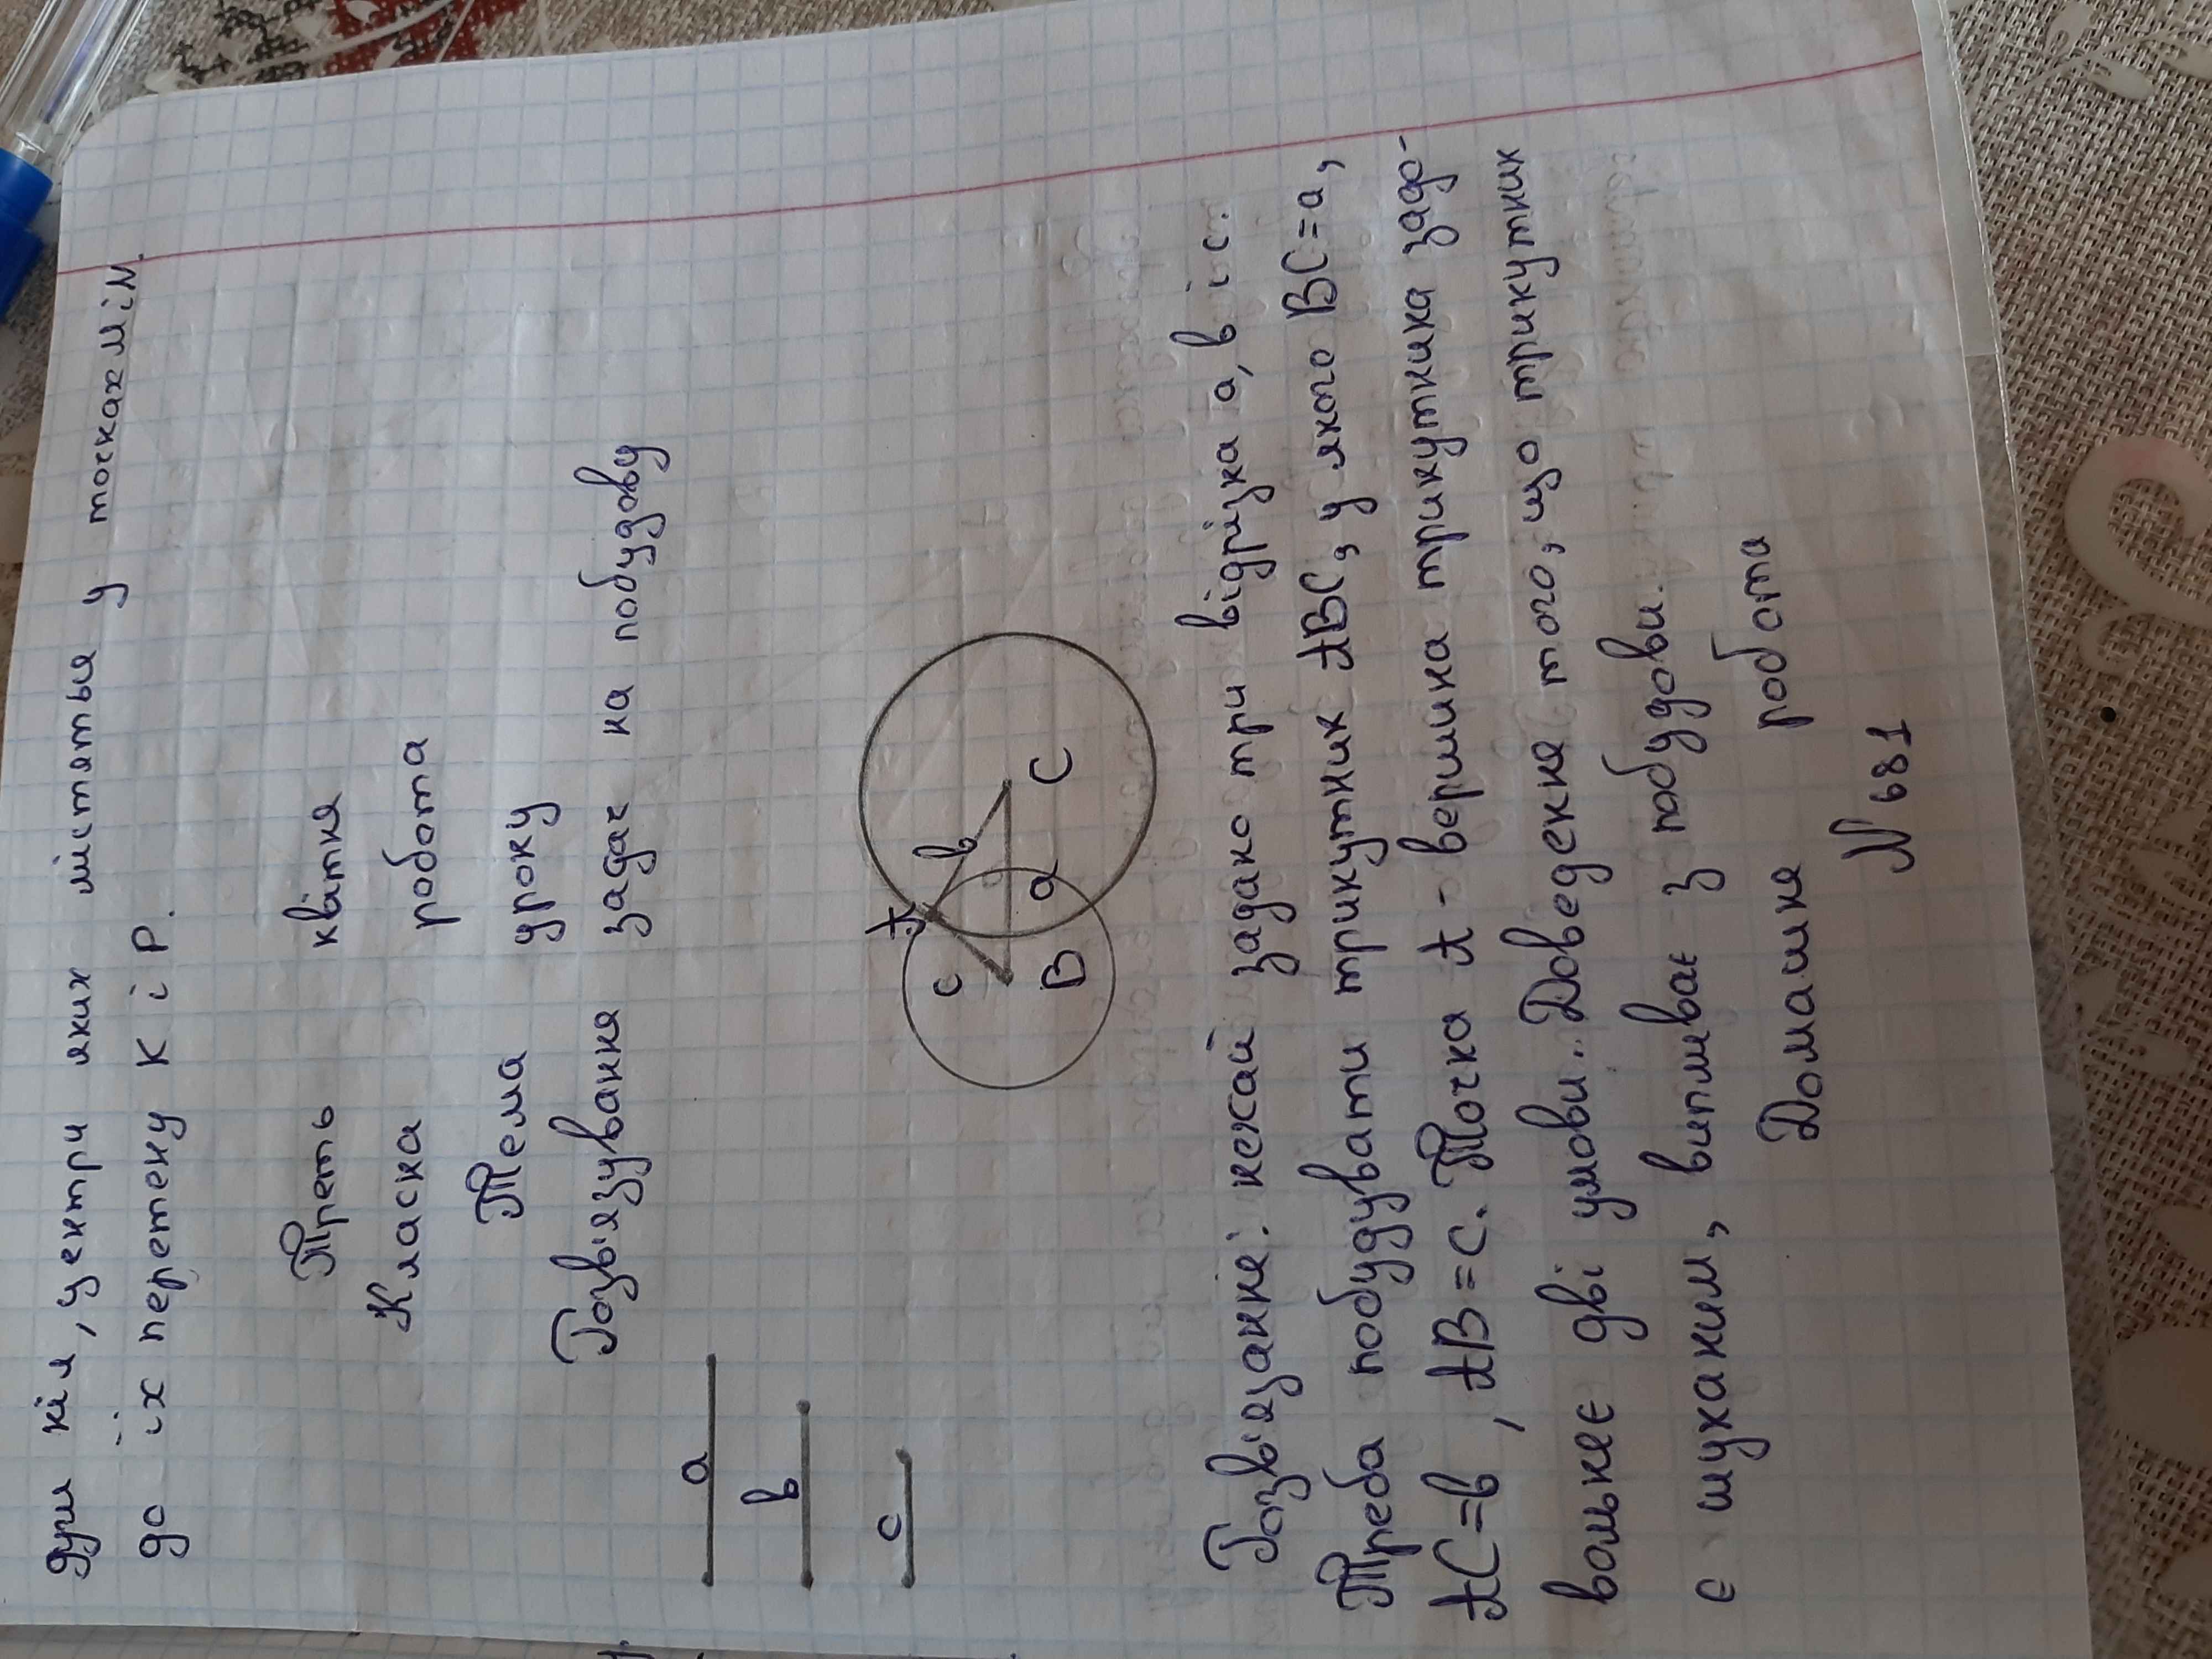 дуги кіл, центри яких містяться у точках M і N.
до їх перетену K і P.
Треть квітня
Класна робота
Тема уроку
Розв'язування задач на побудову
a
в
c
A
c
в
B
a
C
Розв'язанне: нехай задано три відрізка a, в і c.
Треба побудувати трикутник ABC, у якого BC=a,
AC=в, AB=c. Точка A - вершина трикутника задо-
вольняє дві умови. Доведення того, що трикутник
є шуканим, випливає з побудови.
Домашня робота
N 681